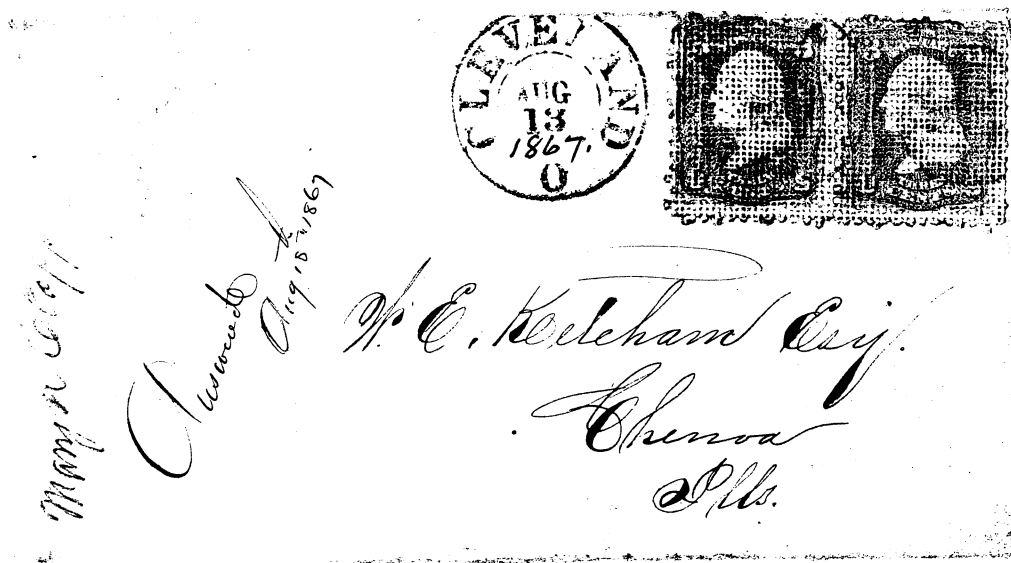 CLEVELAND O
AUG
13
1867.
Answered
Aug 18th 1867
W. E. Ketcham Esq.
Chenoa
Ills.